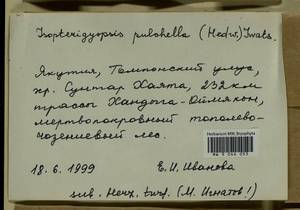 Isopterygiopsis pulchella (Hedw.) Iwats.
Якутия, Томпонский улус,
хр. Сунтар Хаята, 232 км
трассы Хандыга-Оймякон,
мертвопокровный тополево-
чозениевый лес.
Herbarium MW, Bryophyta
18.6.1999 Е.И. Иванова
sub. Herz. turf. (М. Игнатов!)